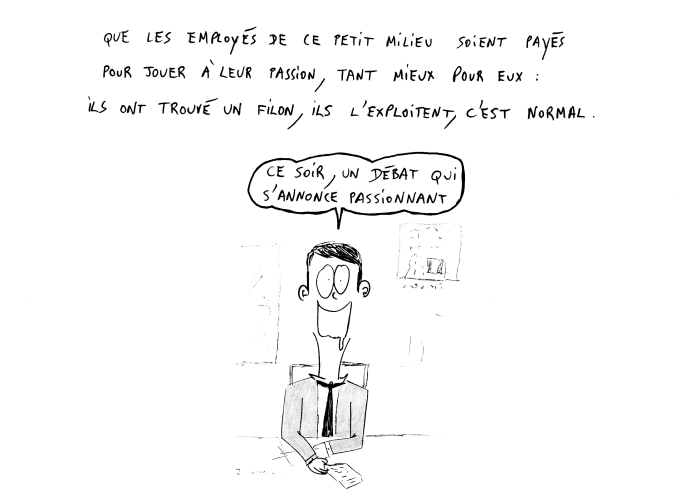 QUE LES EMPLOYÉS DE CE PETIT MILIEU SOIENT PAYÉS
POUR JOUER À LEUR PASSION, TANT MIEUX POUR EUX :
ILS ONT TROUVÉ UN FILON, ILS L'EXPLOITENT, C'EST NORMAL.
CE SOIR, UN DÉBAT QUI
S'ANNONCE PASSIONNANT